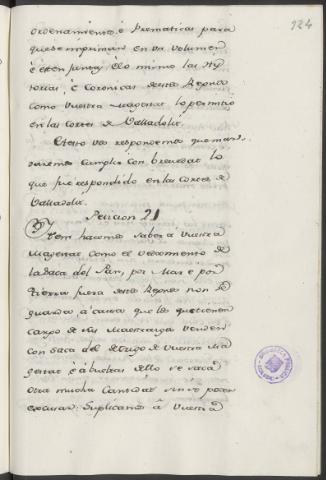 124
ordenamientos é Prematicas para
que se impriman en un volumen
é esten juntas, é lo mismo las Hys
torias, é Coronicas destos Reynos
como Vuestra Magestat lo permitió
en las cortes de Valladolit.
A esto vos respondemos que man
daremos cumplir con brevedat lo
que fué respondido en las Cortes de
Valladolit.
Peticion 21
Item hacemos saber á Vuestra
Magestat como el vedamiento de
la saca del Pan, por Mar é por
tierra fuera destos Reynos non se
guarda á causa que los que tienen
cargo de sus Maestrazgos venden
con saca del de trigo de Vuestra Ma
gestat é á bueltas dello se saca
otra mucha cantidat sin se poder
escusar: Suplicamos á Vuestra